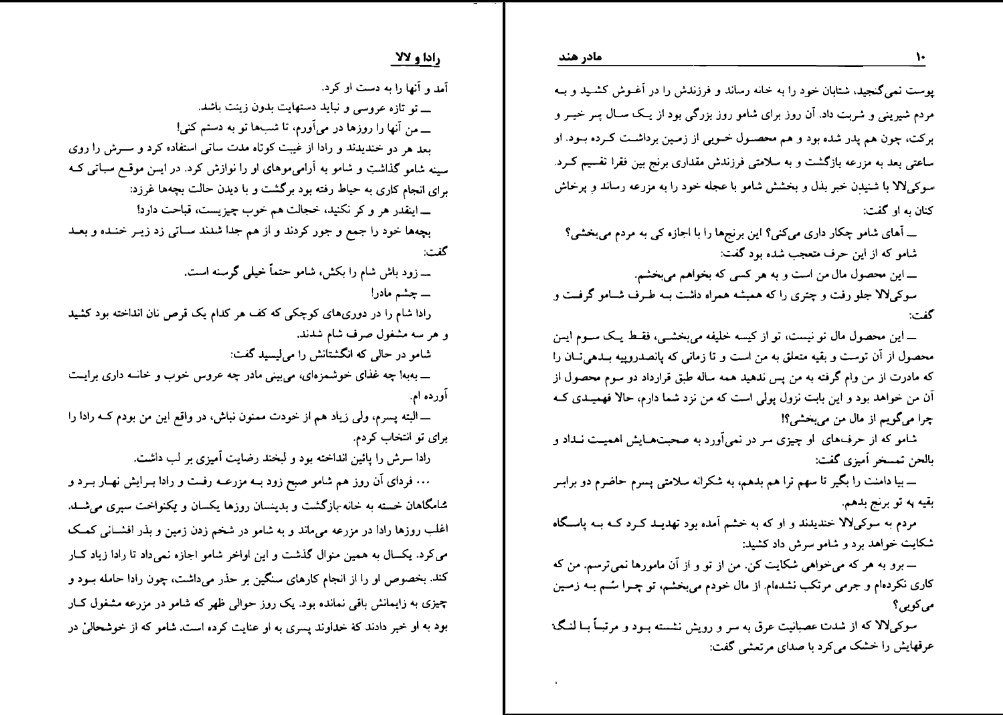 رادا و لالا
آمد و آنها را به دست او کرد.
ــ تو تازه عروسی و نباید دستهایت بدون زینت باشد.
ــ من آنها را روزها در می‌آورم، تا شب‌ها تو به دستم کنی!
بعد هر دو خندیدند و رادا از غیبت کوتاه مدت ساتی استفاده کرد و سرش را روی
سینه شامو گذاشت و شامو به آرامی‌موهای او را نوازش کرد. در ایـن موقع سباتی کـه
برای انجام کاری به حیاط رفته بود برگشت و با دیدن حالت بچه‌ها غرزد:
ــ اینقدر هر و کر نکنید، خجالت هم خوب چیزیست، قباحت دارد!
بچه‌ها خود را جمع و جور کردند و از هم جدا شدند ساتی زد زیـر خنـده و بعـد
گفت:
ــ زود باش شام را بکش، شامو حتماً خیلی گرسنه است.
ــ چشم مادر!
رادا شام را در دوری‌های کوچکی که کف هر کدام یک قرص نان انداخته بود کشید
و هر سه مشغول صرف شام شدند.
شامو در حالی که انگشتانش را می‌لیسید گفت:
ــ به‌به! چه غذای خوشمزه‌ای، می‌بینی مادر چه عروس خوب و خانـه داری برایـت
آورده ام.
ــ البته پسرم، ولی زیاد هم از خودت ممنون نباش، در واقع این من بودم کـه رادا را
برای تو انتخاب کردم.
رادا سرش را پائین انداخته بود و لبخند رضایت آمیزی بر لب داشت.
... فردای آن روز هم شامو صبح زود بـه مزرعـه رفـت و رادا بـرایش نهـار بـرد و
شامگاهان خسته به خانه بازگشت و بدینسان روزها یکسان و یکنواخت سپری می‌شـد.
اغلب روزها رادا در مزرعه می‌ماند و به شامو در شخم زدن زمین و بذر افشـانی کمـک
می‌کرد. یکسال به همین منوال گذشت و این اواخر شامو اجازه نمی‌داد تا رادا زیاد کـار
کند. بخصوص او را از انجام کارهای سنگین بر حذر می‌داشت، چون رادا حامله بـود و
چیزی به زایمانش باقی نمانده بود. یک روز حوالی ظهر که شامو در مزرعه مشغول کـار
بود به او خبر دادند که خداوند پسری به او عنایت کرده است. شامو که از خوشحالی در
۱۰
مادر هند
پوست نمی‌گنجید، شتابان خود را به خانه رساند و فرزندش را در آغـوش کشـید و بـه
مردم شیرینی و شربت داد. آن روز برای شامو روز بزرگی بود از یـک سـال پـر خیـر و
برکت، چون هم پدر شده بود و هم محصول خـوبی از زمـین برداشـت کـرده بـود. او
ساعتی بعد به مزرعه بازگشت و به سلامتی فرزندش مقداری برنج بین فقرا تقسیم کـرد.
سوکی‌لالا با شنیدن خبر بذل و بخشش شامو با عجله خود را به مزرعه رساند و پرخاش
کنان به او گفت:
ــ آهای شامو چکار داری می‌کنی؟ این برنج‌ها را با اجازه کی به مردم می‌بخشی؟
شامو که از این حرف متعجب شده بود گفت:
ــ این محصول مال من است و به هر کسی که بخواهم می‌بخشم.
سوکی‌لالا جلو رفت و چتری را که همیشه همراه داشت بـه طـرف شـامو گرفـت و
گفت:
ــ این محصول مال تو نیست، تو از کیسه خلیفه می‌بخشـی، فقـط یـک سـوم ایـن
محصول از آن توست و بقیه متعلق به من است و تا زمانی که پانصدروپیه بـدهی‌تـان را
که مادرت از من وام گرفته به من پس ندهید همه ساله طبق قرارداد دو سوم محصول از
آن من خواهد بود و این بابت نزول پولی است که من نزد شما دارم، حالا فهمیـدی کـه
چرا می‌گویم از مال من می‌بخشی؟!
شامو که از حرف‌های او چیزی سر در نمی‌آورد به صحبت‌هـایش اهمیـت نـداد و
بالحن تمسخر آمیزی گفت:
ــ بیا دامنت را بگیر تا سهم ترا هم بدهم، به شکرانه سلامتی پسرم حاضرم دو برابـر
بقیه به تو برنج بدهم.
مردم به سوکی‌لالا خندیدند و او که به خشم آمده بود تهدیـد کـرد کـه بـه پاسـگاه
شکایت خواهد برد و شامو سرش داد کشید:
ــ برو به هر که می‌خواهی شکایت کن. من از تو و از آن مامورها نمی‌ترسم. من که
کاری نکرده‌ام و جرمی مرتکب نشده‌ام. از مال خودم می‌بخشم، تو چـرا سُـم بـه زمـین
می‌کوبی؟
سوکی‌لالا که از شدت عصبانیت عرق به سر و رویش نشسته بـود و مرتبـاً بـا لنـگ
عرقهایش را خشک می‌کرد با صدای مرتعشی گفت: